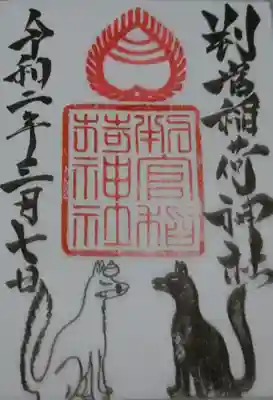 判官稲荷神社
判官稲
荷神社
令和二年三月七日